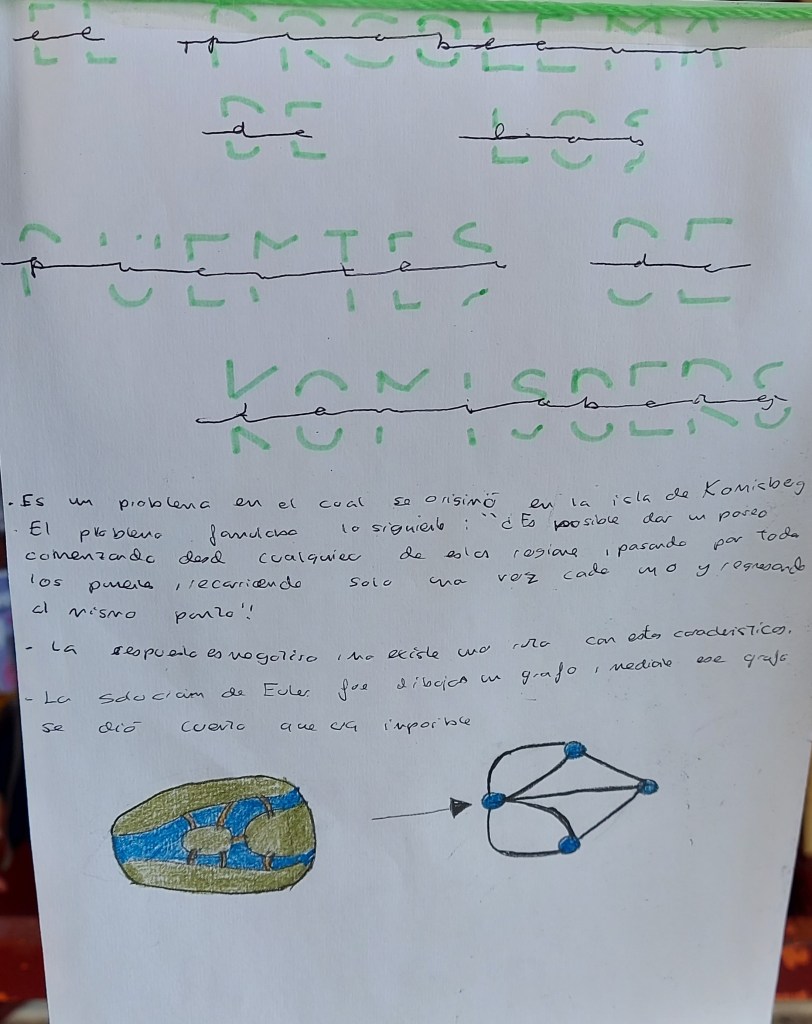 EL PROBLEMA
DE LOS
PUENTES DE
KONISBERG
- Es un problema en el cual se origino en la isla de Konisbeg
- El problema lo siguiente: "¿Es posible dar un paseo
comenzando desd cualquier de estas regione, pasando por todo
los puentes, recorriendo solo una vez cada uno y regresando
al mismo punto"!
- La respuesta es negativa, no existe una ruta con estas caracteristicas.
- La solucion de Euler fue dibujar un grafo, mediante ese grafo
se dió cuenta que era imposible